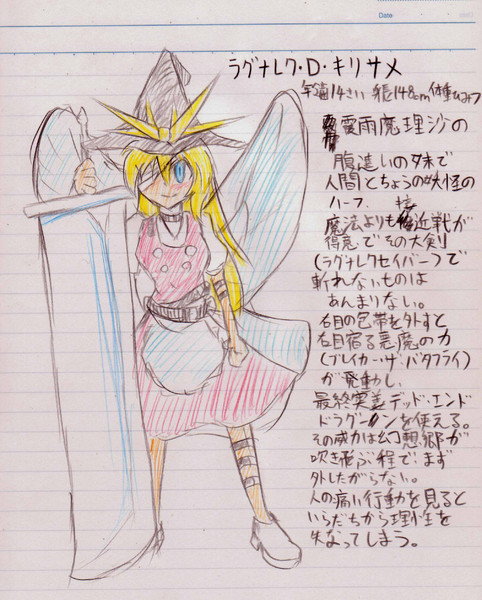 Date
ラグナレク・D・キリサメ
年齢14さい 身長148cm 体重ひみつ
霧雨魔理沙の
腹違いの妹で
人間とちょうの妖怪の
ハーフ。
魔法よりも接近戦が
得意でその大剣
(ラグナレクセイバー)で
斬れないものは
あんまりない。
右目の包帯を外すと
右目に宿る悪魔の力
(ブレイカー・ザ・バタフライ)
が発動し、
最終奥義デッド・エンド
ドラグーンを使える。
その威力は幻想郷が
吹き飛ぶ程で、まず
外したがらない。
人の痛い行動を見ると
いらだちから理性を
失なってしまう。